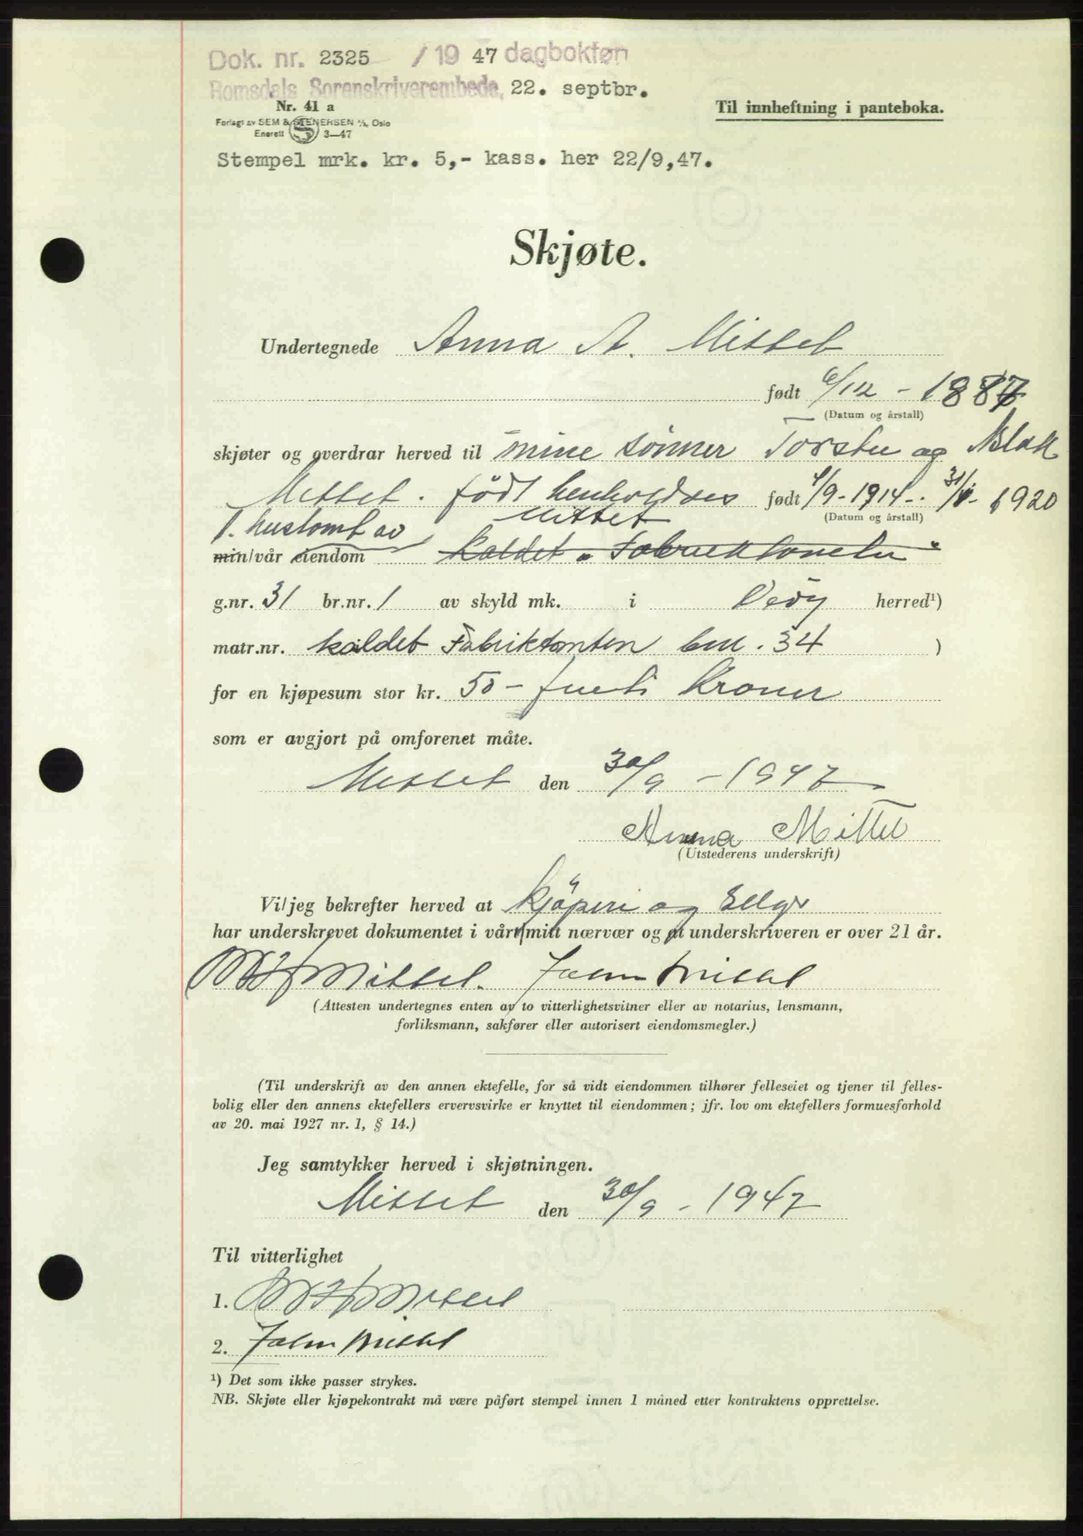 Dok. nr. 2325 / 19 47 dagboken
Romsdals Sorenskriverembede, 22. septbr.
Nr. 41 a
Til innheftning i panteboka.
Forlagt av SEM & STENERSEN A/S, Oslo
Enerett 3—47
Stempel mrk. kr. 5,- kass. her 22/9,47.
Skjøte.
Undertegnede Anna A. Mittet
født 6/12 - 1887
(Datum og årstall)
skjøter og overdrar herved til mine sönner og
Mittet. født henholdsvis født 4/9-1914 - 1920
(Datum og årstall)
Mittet
av
min/vår eiendom kaldet "Fabriktomten"
g.nr. 31 br.nr. 1 av skyld mk. i Veöy herred¹)
matr.nr. kaldet Fabriktomten bnr. 34 )
for en kjøpesum stor kr. 50 - femti Kroner
som er avgjort på omforenet måte.
Mittet den 30/9 - 1947
Anna Mittet
(Utstederens underskrift)
Vi/jeg bekrefter herved at kjöperi og Selger
har underskrevet dokumentet i vårt/mitt nærvær og at underskriveren er over 21 år.
Mittet. John Mittet
(Attesten undertegnes enten av to vitterlighetsvitner eller av notarius, lensmann,
forliksmann, sakfører eller autorisert eiendomsmegler.)
(Til underskrift av den annen ektefelle, for så vidt eiendommen tilhører felleseiet og tjener til felles-
bolig eller den annens ektefellers ervervsvirke er knyttet til eiendommen; jfr. lov om ektefellers formuesforhold
av 20. mai 1927 nr. 1, § 14.)
Jeg samtykker herved i skjøtningen.
Mittet den 30/9 - 1947
Til vitterlighet
1. Mittet
2. John Mittet
¹) Det som ikke passer strykes.
NB. Skjøte eller kjøpekontrakt må være påført stempel innen 1 måned etter kontraktens opprettelse.